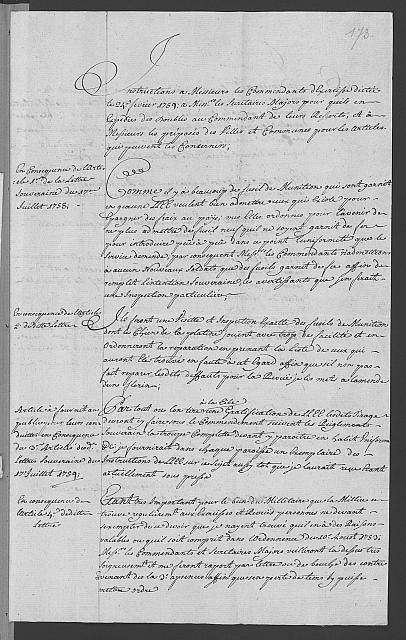 173.
Instructions a Messieurs les Commendants d'Exercisse dictée
le 24e fevrier 1759; a Messrs les Secretaires Majors pour quils en
Expedies des Doubles au Commendant de leurs Ressorts, et à
Messieurs les préposés des Villes et Communes pour les articles
qui peuvent les Concerner;
En Consequence de l'arti-
cle 1er de la Lettre
Souveraine du 17e
Juillet 1758;
Comme il y à beaucoup de fusil de Munition qui sont garnis
en jaune LLEE veulent bien admettre ceux qui Existe pour
Epargner des fraix au païs; mais Elles ordonnes pour lavenir de
ne plus admettre de fusil neuf qui ne soyent garnit de fer
pour introduire peu a peu dans ce point l'uniformité que le
Service demande, par consequent Messrs les Commendants n'admettrons
a aucun Nouveaux Soldat que des fusils garnit de fer affin de
remplir l'intention Souveraine, les avertissants que s'en ferait
une Inspection particuliere;
En consequence de l'article
2e de dite Lettre
Ils feront une Visite et Inspection Exacte des fusils de Munition
dont le Chien de la platine jouent avec trop de facilité et en
ordonneront la reparation en prenant les Liste de ceux qui
auront Eté trouvés en faute a cet Egard affin que s'il non pas
fait reparer lesdits deffauts pour la Revüe je les mets a l'amende
Article a fournir au
public, sur leurs con-
duit en Consequence
du 3e Article de dte
Lettre Souveraine du
17e Juillet 1758;
Par tout ou l'on tire une Gratification de LLEE lesdits Tirage
devront s'y faire sous le Commendement suivant les Reglements
Souverain la troupe Complette devant y paroitre en habit Uniforme
Instructions de LLEE sur ce Sujet aussy tot que je l'aurait reçu Etant
actuellement sous presse
En consequence de
l'article 4e de dite
Lettre
Etant tres Important pour le bien du Militaire que la Milice se
trouve regulierement aux Exercises et Revües personnes ne devant
s'exempter de ce devoir que je n'ayent trouvé quil en à des Raisons
valables ou quil soit comprit dans l'ordonnence du 10e Aoust 1753;
Messrs les Commendants et Secretaires Majors veilleront la dessus tres
Soigneusement et me feront raport par lettre ou de bouche des contre
mettre ordre